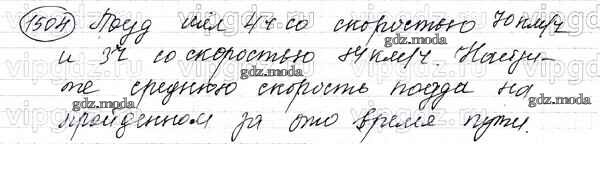 1504 Поезд шёл 4ч со скоростью 70км/ч
и 3ч со скоростью 84км/ч. Найди-
те среднюю скорость поезда на
пройденном за это время пути.
gdz.moda
gdz.moda
gdz.moda
gdz.moda
gdz.moda
vipgdz